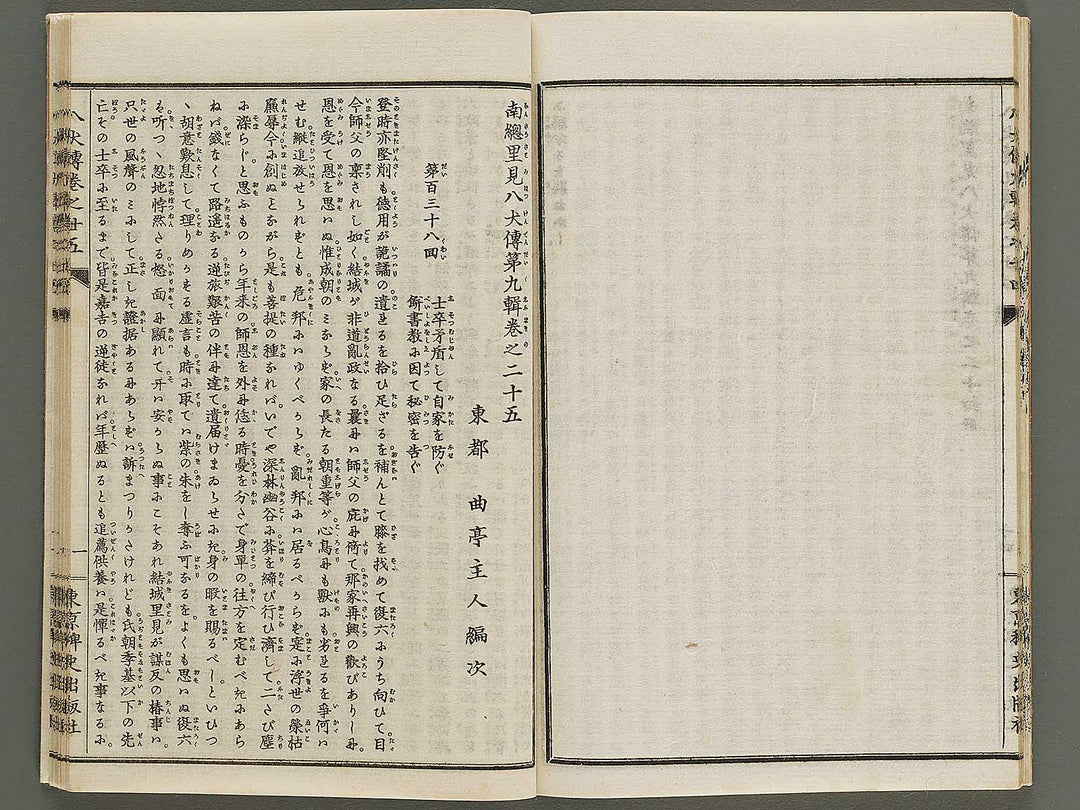 南總里見八犬傳第九輯卷之二十五
東都 曲亭主人編次
第百三十八回
士卒矛盾して自家を防ぐ
餠書敎に因て秘密を告ぐ
登時亦堅削も徳用が詭譎の遺せるを拾ひ足ざるを補んとて膝を找めて復六にうち向ひて目
今師父の稟されし如く結城が非道亂政なる曩には師父の庇に倚て那家再興の歡びありしに
恩を受て恩を思はぬ惟成朝のみならず家の長たる朝重等が心鳥にも獸にも劣まるを爭何は
せむ縱追放せられずとも危邦にはゆくべからず亂邦には居るべからず寔に浮世の榮枯
廉辱今に創ぬことながら是も菩提の種なればいでや深林幽谷に菴を締び行ひ濟して二さび塵
に染らじと思ふものから年來の師恩を外に恁る時憂を分さで身單の往方を定むべきにあら
ねば錢なくて路遙なる逆旅艱苦の伴に達て遺届けまゐらせに身の暇を賜るべしといひつ
ゝ胡意歎息して理りめかせる虚言も時に取ては紫の朱をし奪ふ可なるをよくも思はぬ復六
を聽つゝ忽地悖然さる怒面に顯れて开は安からぬ事にこそあれ結城里見が謀反の椿事は
只世の風聲のみにして正しき證据あるにあらずは訴まつりかたけれども氏朝季基以下の先
亡その士卒に至るまで皆是嘉吉の逆徒なれば年歷ぬるとも追薦供養は是憚るべき事なるに
八犬傳卷之廿五
一
東京稗史出版社